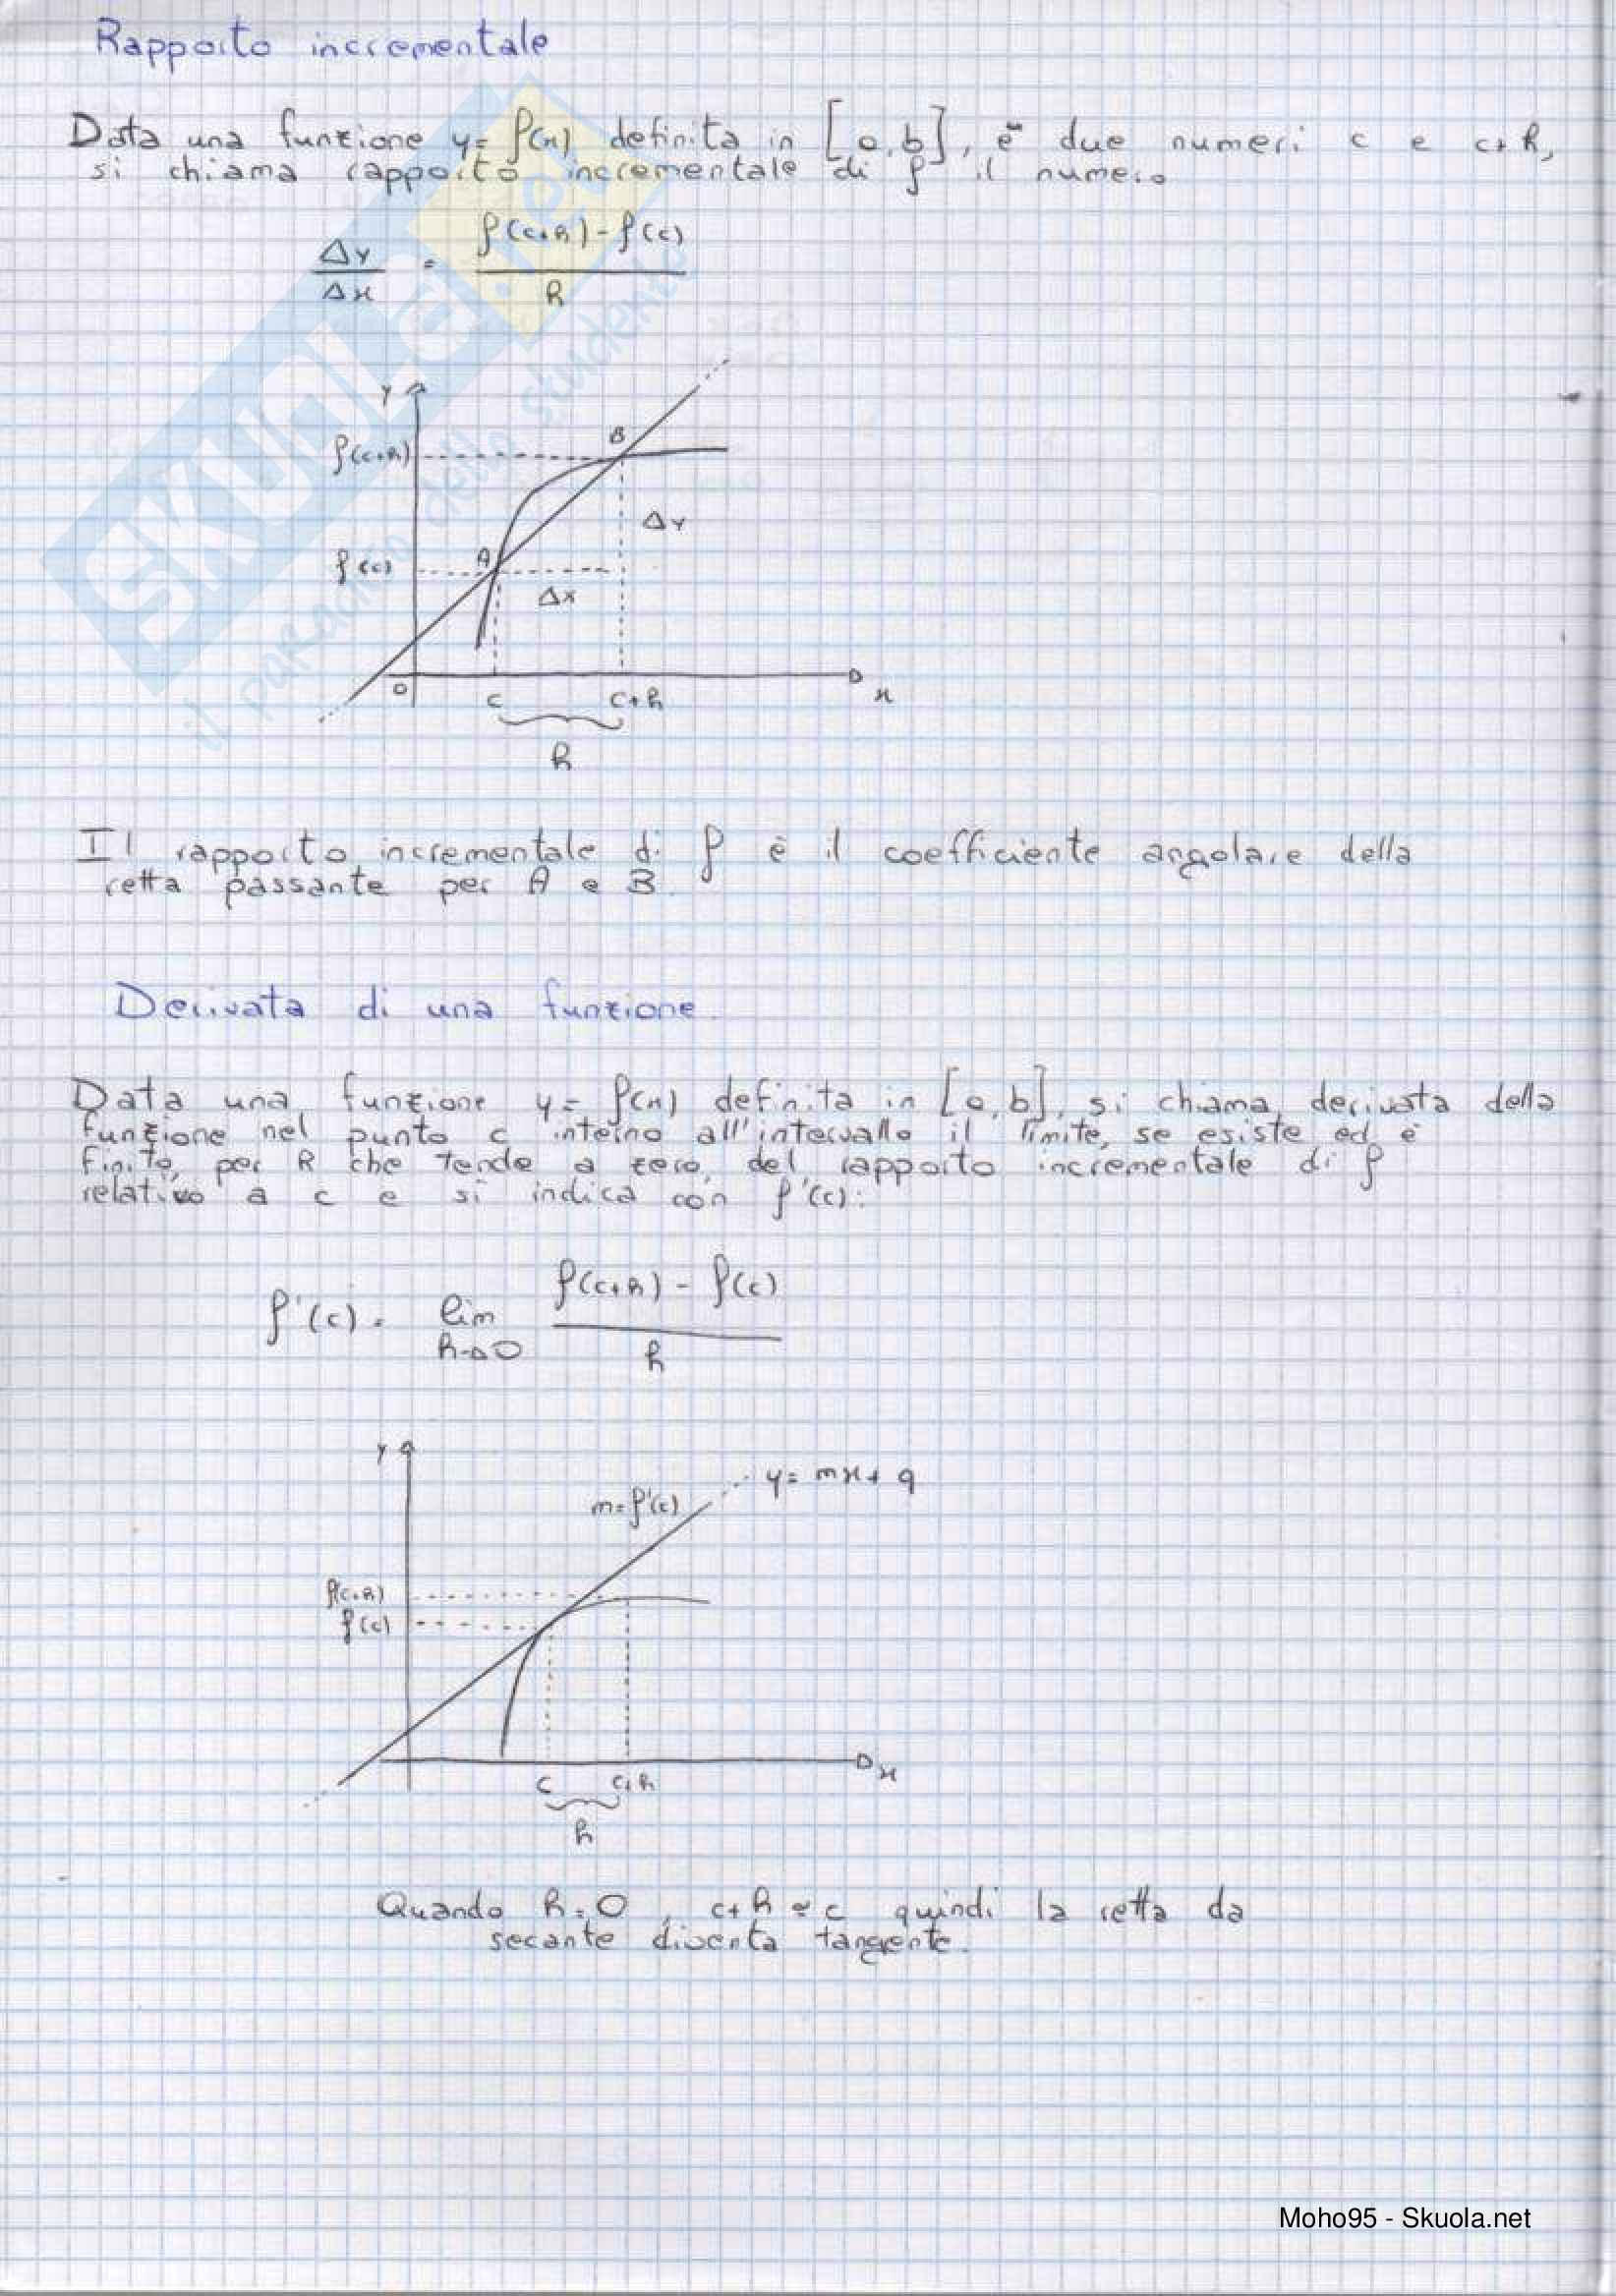 Rapporto incrementale
Data una funzione y = f(x) definita in [a, b], e due numeri c e c+h,
si chiama rapporto incrementale di f il numero
Δy/Δx = f(c+h) - f(c) / h
y
f(c+h)
B
Δy
f(c)
A
Δx
O
c
c+h
x
h
Il rapporto incrementale di f è il coefficiente angolare della
retta passante per A e B.
Derivata di una funzione.
Data una funzione y = f(x) definita in [a, b], si chiama derivata della
funzione nel punto c interno all'intervallo il limite, se esiste ed è
finito, per h che tende a zero, del rapporto incrementale di f
relativo a c e si indica con f'(c):
f'(c) = lim h→0 f(c+h) - f(c) / h
y
y = mx + q
m = f'(c)
f(c+h)
f(c)
c
c+h
x
h
Quando h = 0, c+h = c quindi la retta da
secante diventa tangente.
SKUOLA.net
il paradiso dello studente
Moho95 - Skuola.net